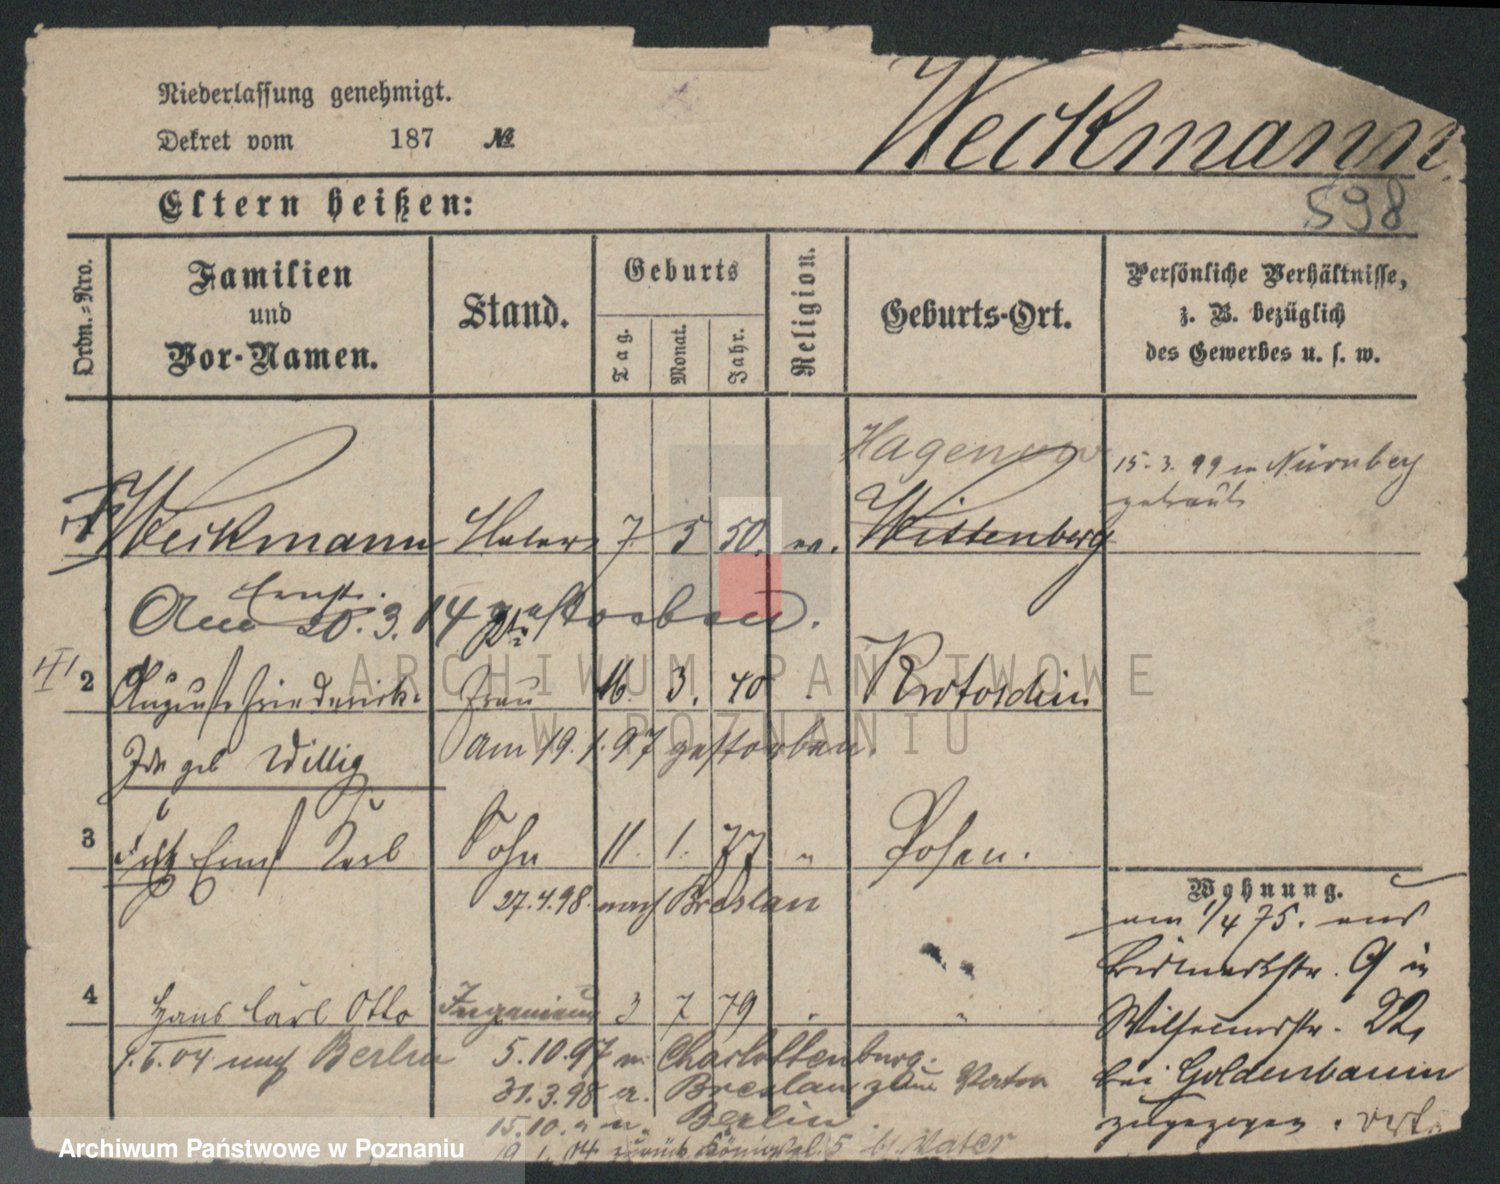 Niederlassung genehmigt.
Dekret vom 187 №
Weckmann
598
Eltern heißen:
Ordn.-Nro.
Familien
und
Vor-Namen.
Stand.
Geburts
Tag.
Monat.
Jahr.
Religion.
Geburts-Ort.
Persönliche Verhältnisse,
z. B. bezüglich
des Gewerbes u. s. w.
Hagenow
15.3.99 in Nürnberg
getraut
Weckmann Maler 7. 5 50. ev. Wittenberg
Ernst.
Am 20.3.14 gestorben.
2 Auguste Friederick. Frau 16. 3. 40 Krotoschin
Ida geb Willig am 19.1.97 gestorben.
3 Ernst Karl Sohn 11. 1. 77 " Posen.
27.4.98. nach Breslau
Wohnung.
am 1/4 75. aus
Bismarckstr. 9 in
Wilhelmstr. 22,
bei Goldenbaum
zugezogen.
4 Hans Carl Otto Ingenieur 3 7 79 " "
1.6.04 nach Berlin
5.10.97 n. Charlottenburg.
31.3.98 a. Breslau zum Vater
15.10. " n. Berlin
19.1.04 zurück 5 b. Vater
ARCHIWUM PAŃSTWOWE
W POZNANIU
Archiwum Państwowe w Poznaniu